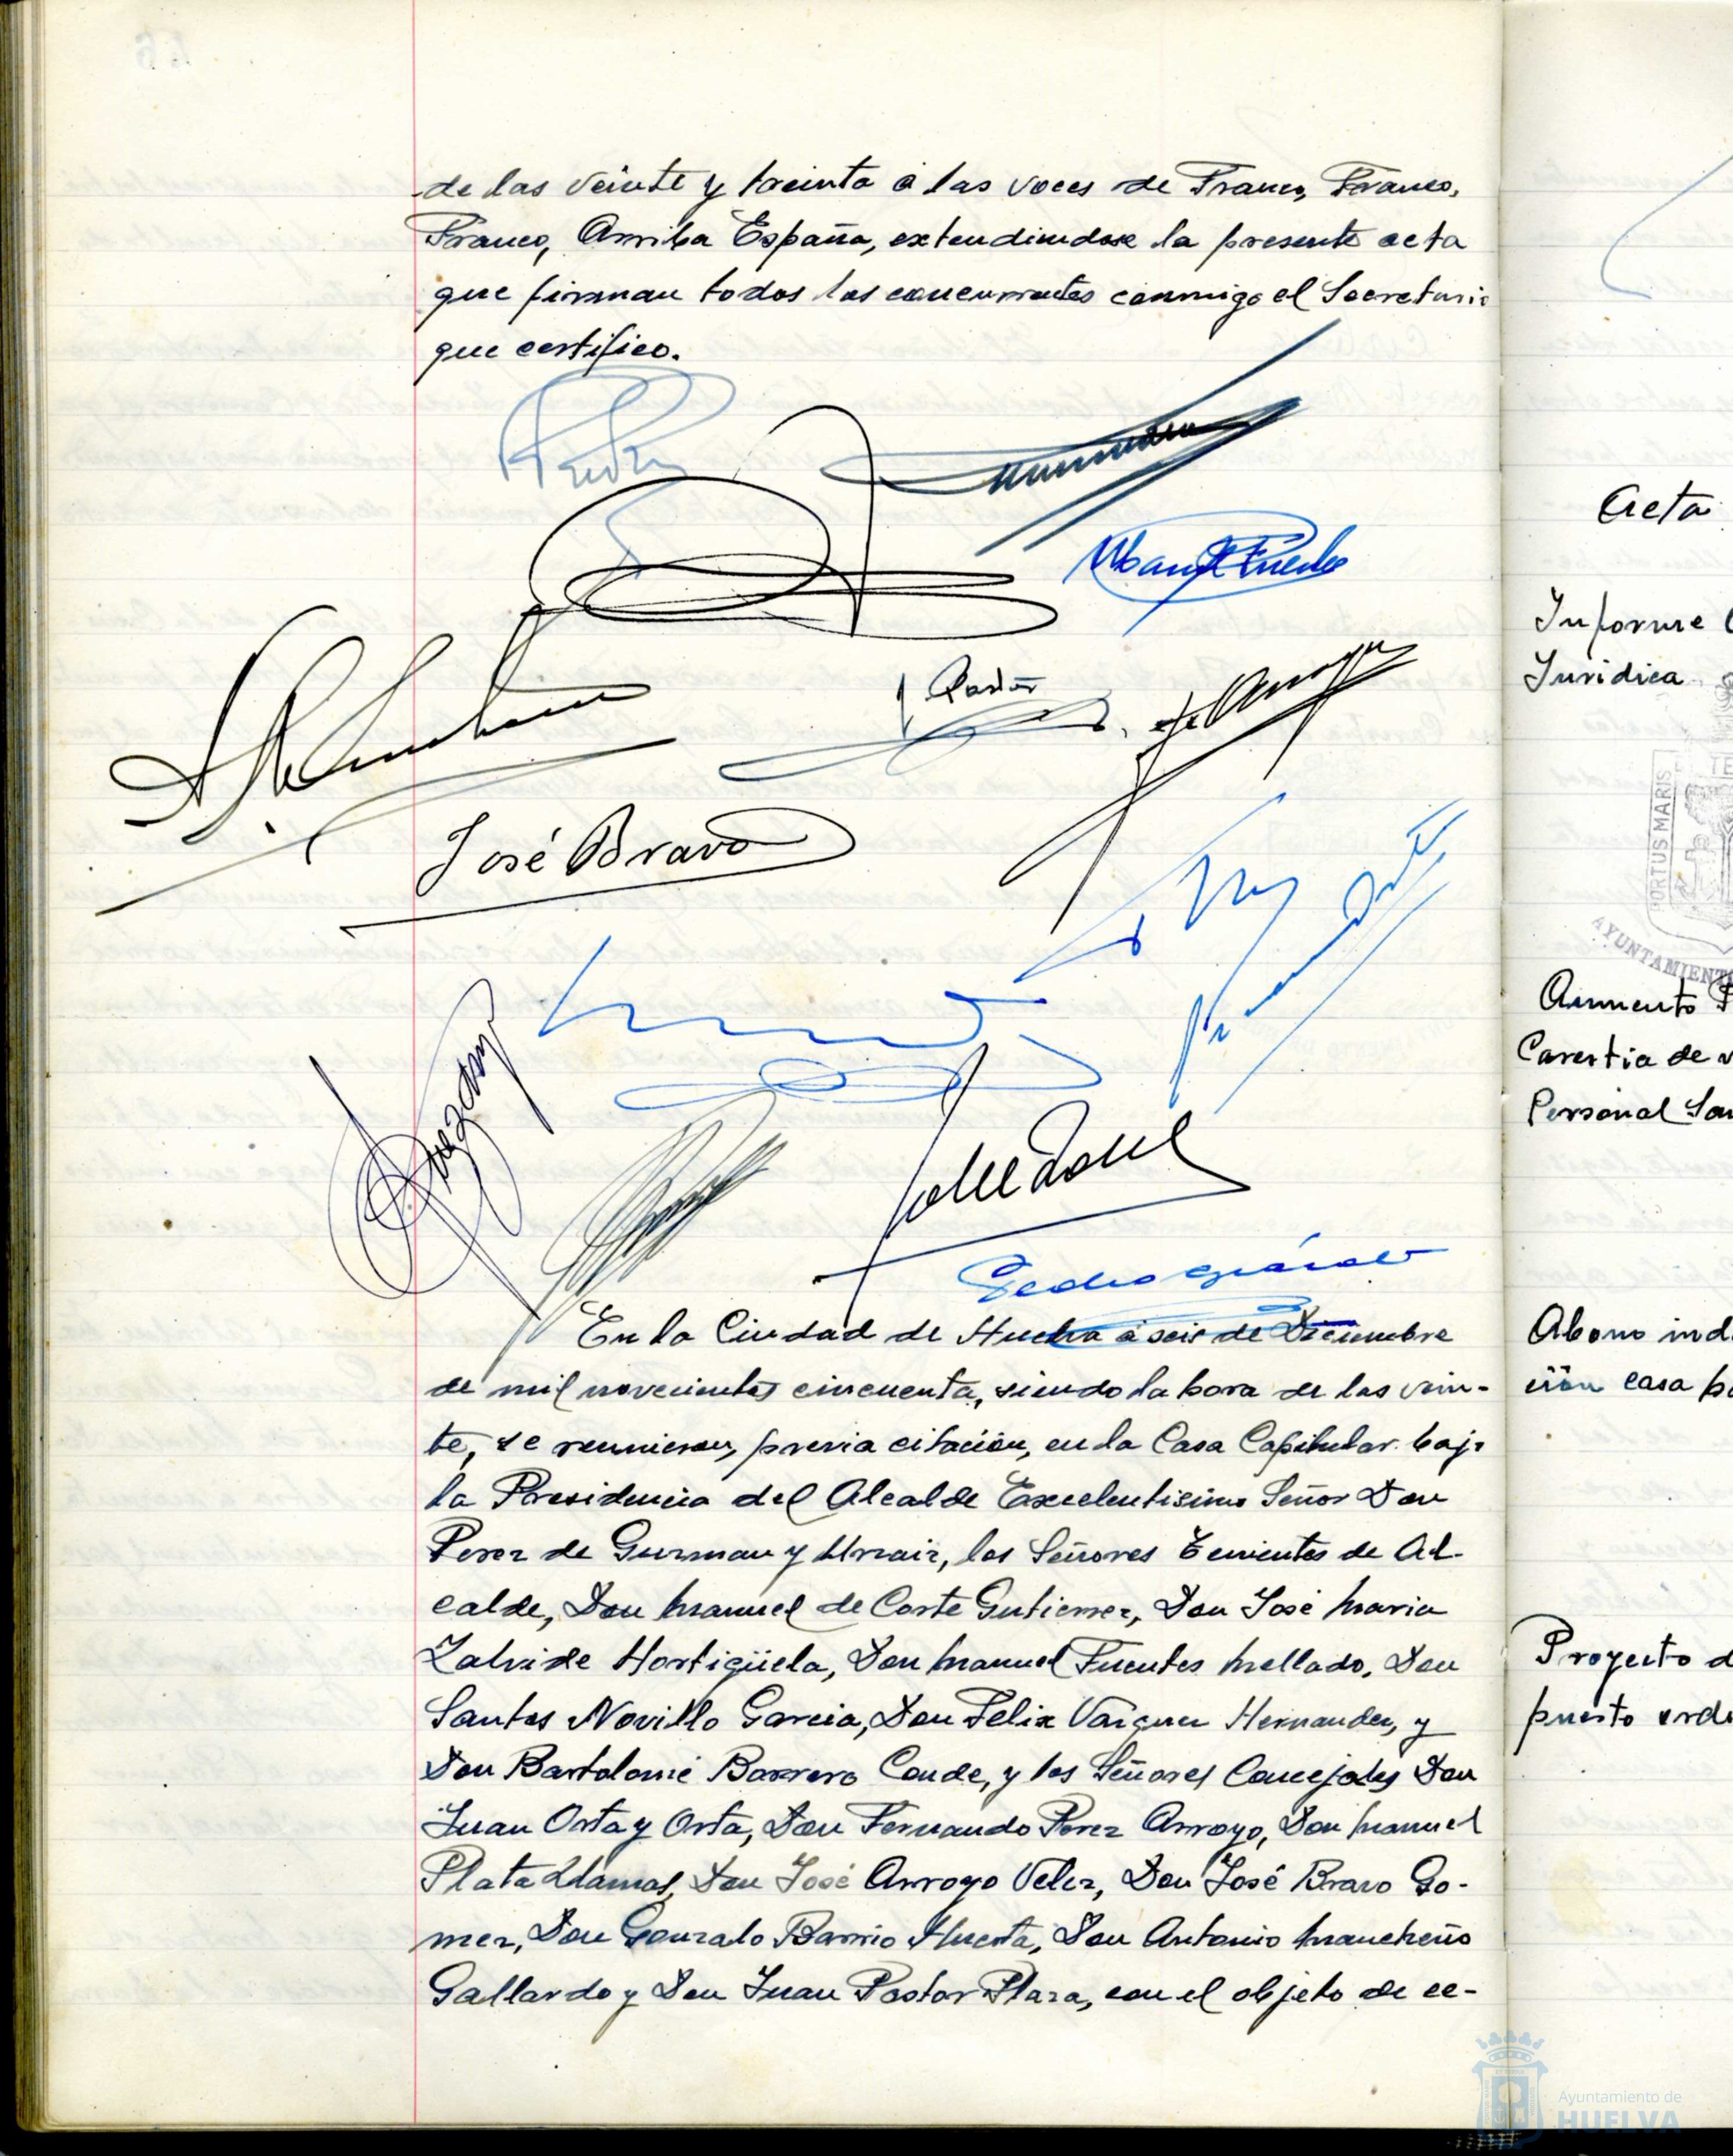 de las veinte y treinta a las voces de Franco, Franco,
Franco, Arriba España, extendiendose la presente acta
que firman todos los concurrentes conmigo el Secretario
que certifico.
Manuel Fuentes
J Pastor
José Bravo
Pedro
En la Ciudad de Huelva a seis de Diciembre
de mil novecientos cincuenta, siendo la hora de las vein-
te, se reunieron, previa citación, en la Casa Capitular bajo
la Presidencia del Alcalde Excelentisimo Señor Don
Perez de Guzman y Urzaiz, los Señores Tenientes de Al-
calde, Don Manuel de Corte Gutierrez, Don José Maria
Zalvide Hortigüela, Don Manuel Fuentes Mellado, Don
Santos Novillo Garcia, Don Felix Vazquez Hernandez, y
Don Bartolomé Barrero Conde, y los Señores Concejales Don
Juan Orta y Orta, Don Fernando Perez Arroyo, Don Manuel
Plata Llamas, Don José Arroyo Velez, Don José Bravo Go-
mez, Don Gonzalo Barrio Huerta, Don Antonio Mancheño
Gallardo y Don Juan Pastor Plaza, con el objeto de ce-
Acta
Informe
Juridica
PORTUS MARIS
TE
AYUNTAMIENTO
Aumento P
Carestia de v
Personal San
Abono ind
ción casa
Proyecto d
puesto ordi
Ayuntamiento de
HUELVA